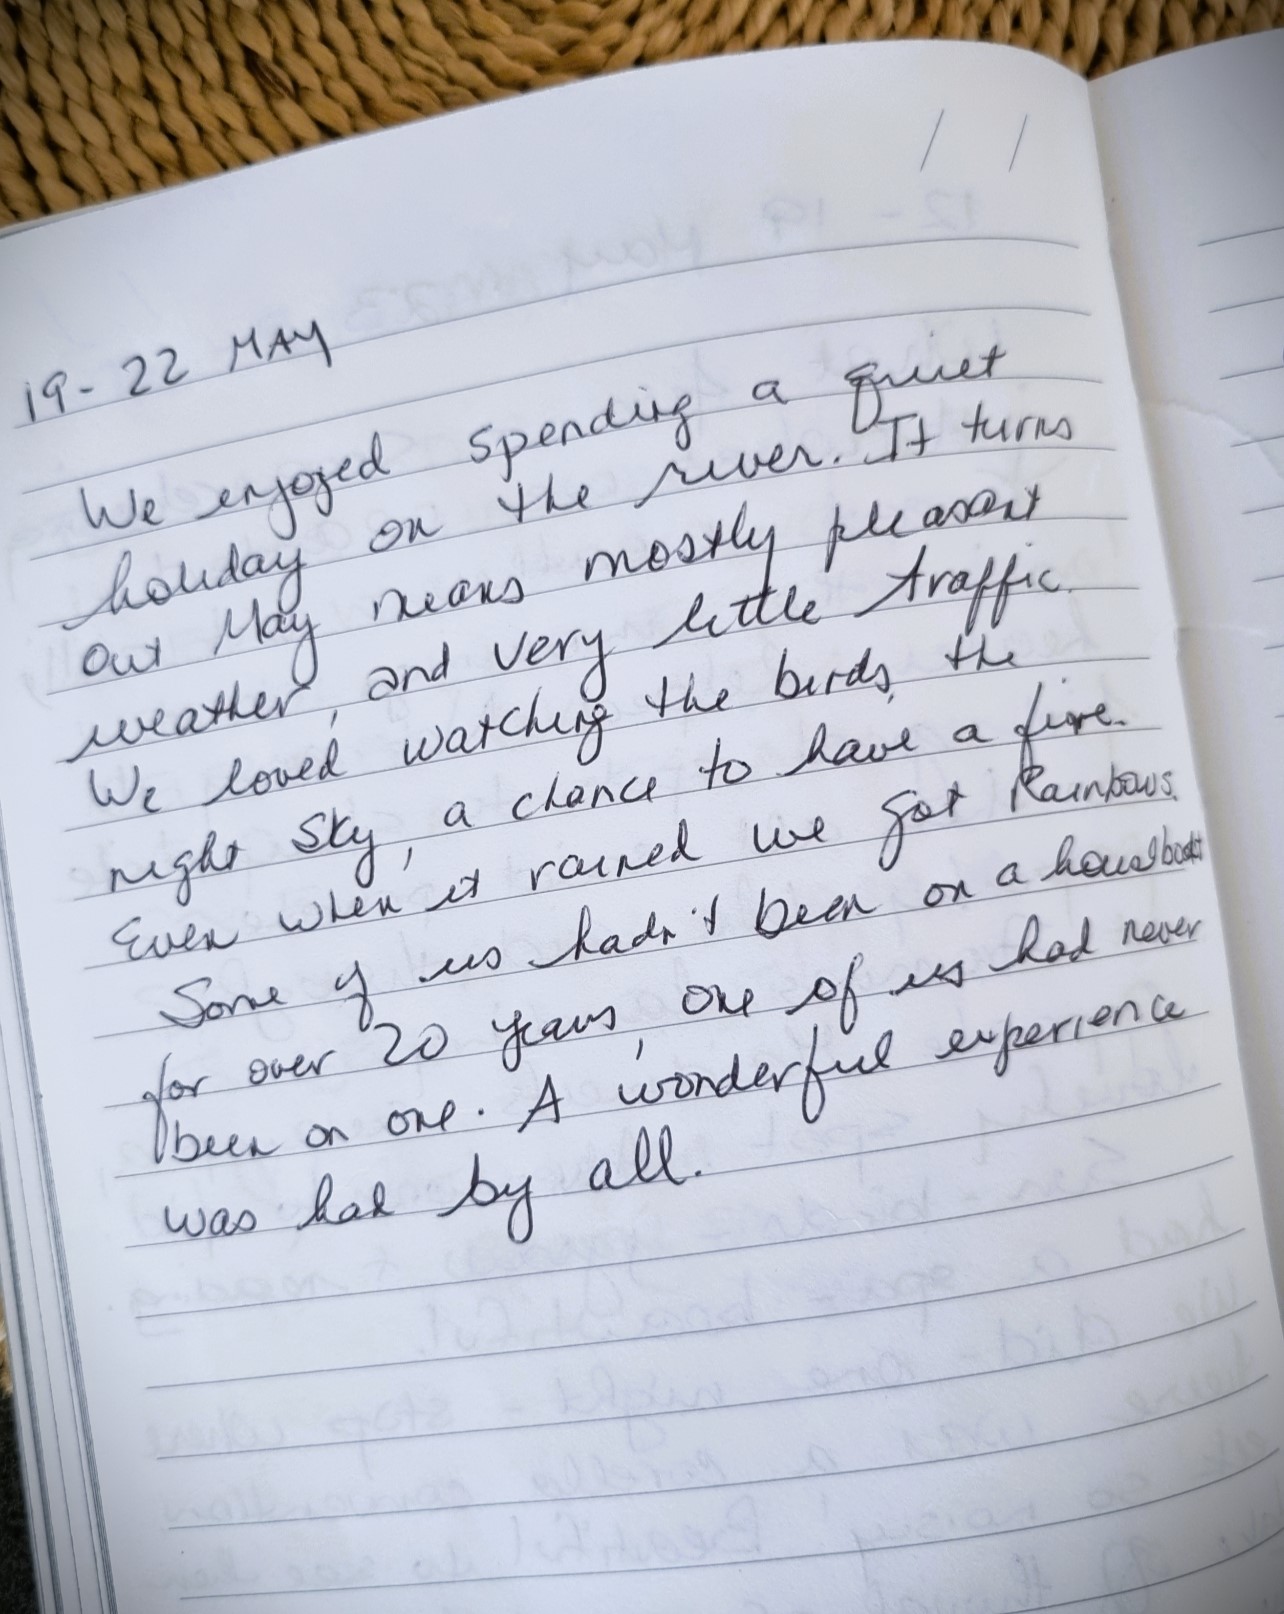 / /
19-22 MAY
We enjoyed spending a quiet
holiday on the river. It turns
out May means mostly pleasant
weather, and very little traffic.
We loved watching the birds, the
night sky, a chance to have a fire.
Even when it rained we got Rainbows.
Some of us hadn't been on a houseboat
for over 20 years, one of us had never
been on one. A wonderful experience
was had by all.